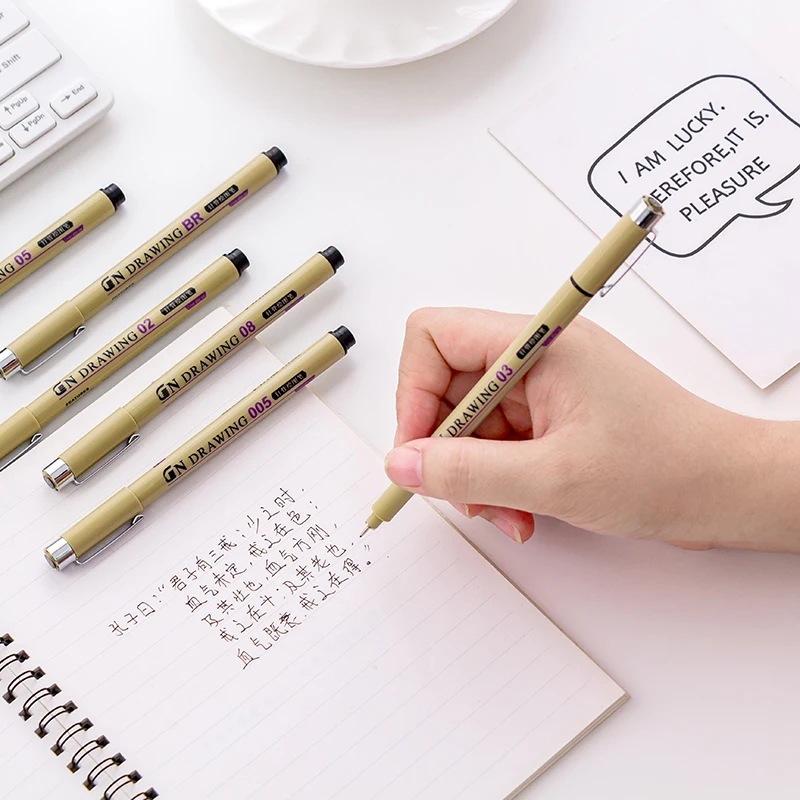 Shift
PgUp
End
PgDn
I AM LUCKY.
EREFORE,IT IS.
PLEASURE
05
DRAWING BR
针管绘图笔
GN DRAWING 02
针管绘图笔
GN DRAWING 08
针管绘图笔
GN DRAWING 005
针管绘图笔
DRAWING 03
针管绘图笔
孔子曰:“君子有三戒:少之时,
血气未定,戒之在色;
及其壮也,血气方刚,
戒之在斗;及其老也,
血气既衰,戒之在得。”